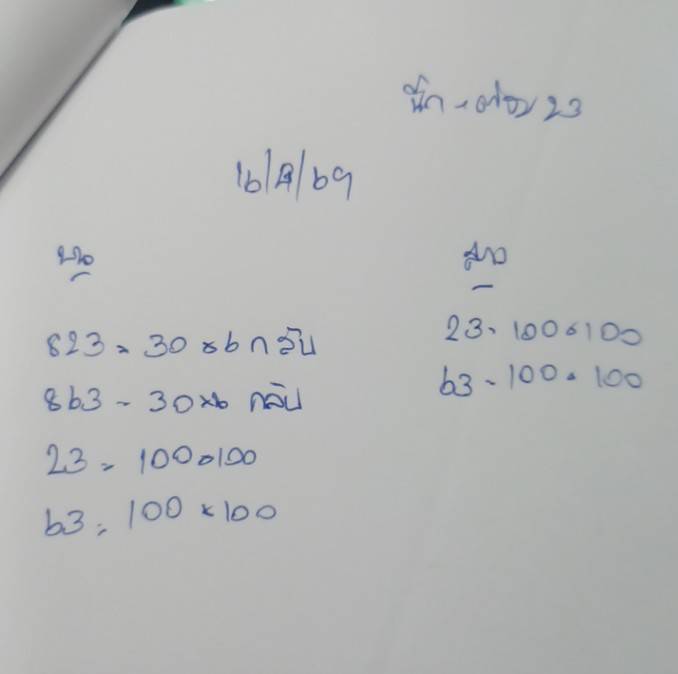 23
16/4/69
บน
823 = 30 × 6 กลับ
863 - 30 × 6 กลับ
23 = 100 × 100
63 = 100 × 100
ลาว
23 - 100 × 100
63 - 100 × 100